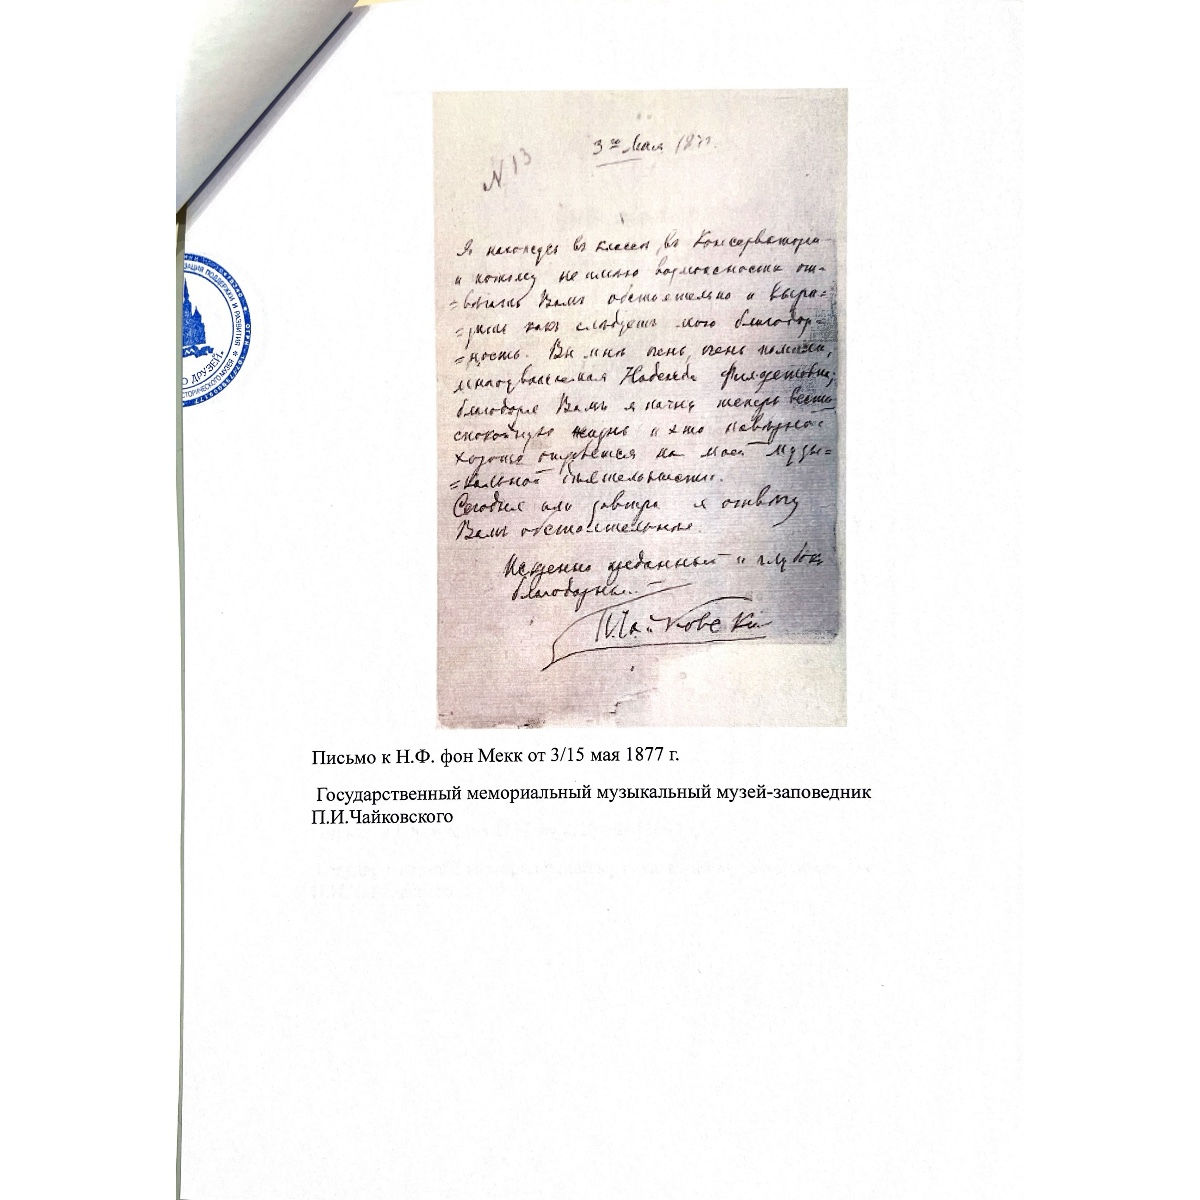 3го Мая 1877.
N 13
Я нахожусь въ классѣ, въ Консерваторіи
и потому не имѣю возможности от-
=вѣчать Вамъ обстоятельно и выра=
=зить какъ слѣдуетъ мою благодар=
=ность. Вы мнѣ очень, очень помогли,
многоуважаемая Надежда Филаретовна,
благодаря Вамъ я начну теперь вести
спокойную жизнь и это навѣрное
хорошо отзовется на моей музы=
=кальной дѣятельности.
Сегодня или завтра я отвѣчу
Вамъ обстоятельнѣе.
Искренно преданный и глубоко
благодарный
П. Чайковскій
Письмо к Н.Ф. фон Мекк от 3/15 мая 1877 г.
Государственный мемориальный музыкальный музей-заповедник
П.И.Чайковского
ПОДДЕРЖКИ И РАЗВИТИЯ
ИСТОРИЧЕСКОГО МУЗЕЯ
О ДРУЗЕЙ